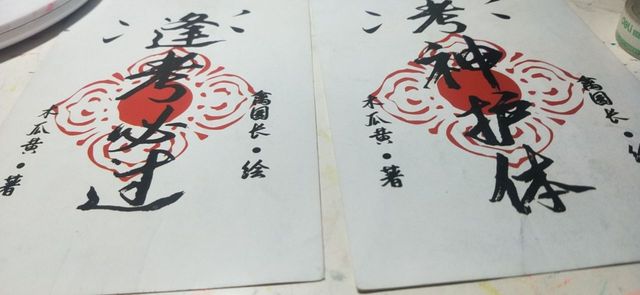 逢考必过
禽国长·绘
木瓜黄·著
考神护体
禽国长
木瓜黄·著